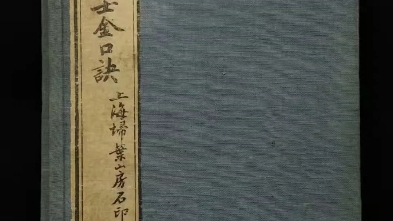 壬金口訣
上海掃葉山房石印